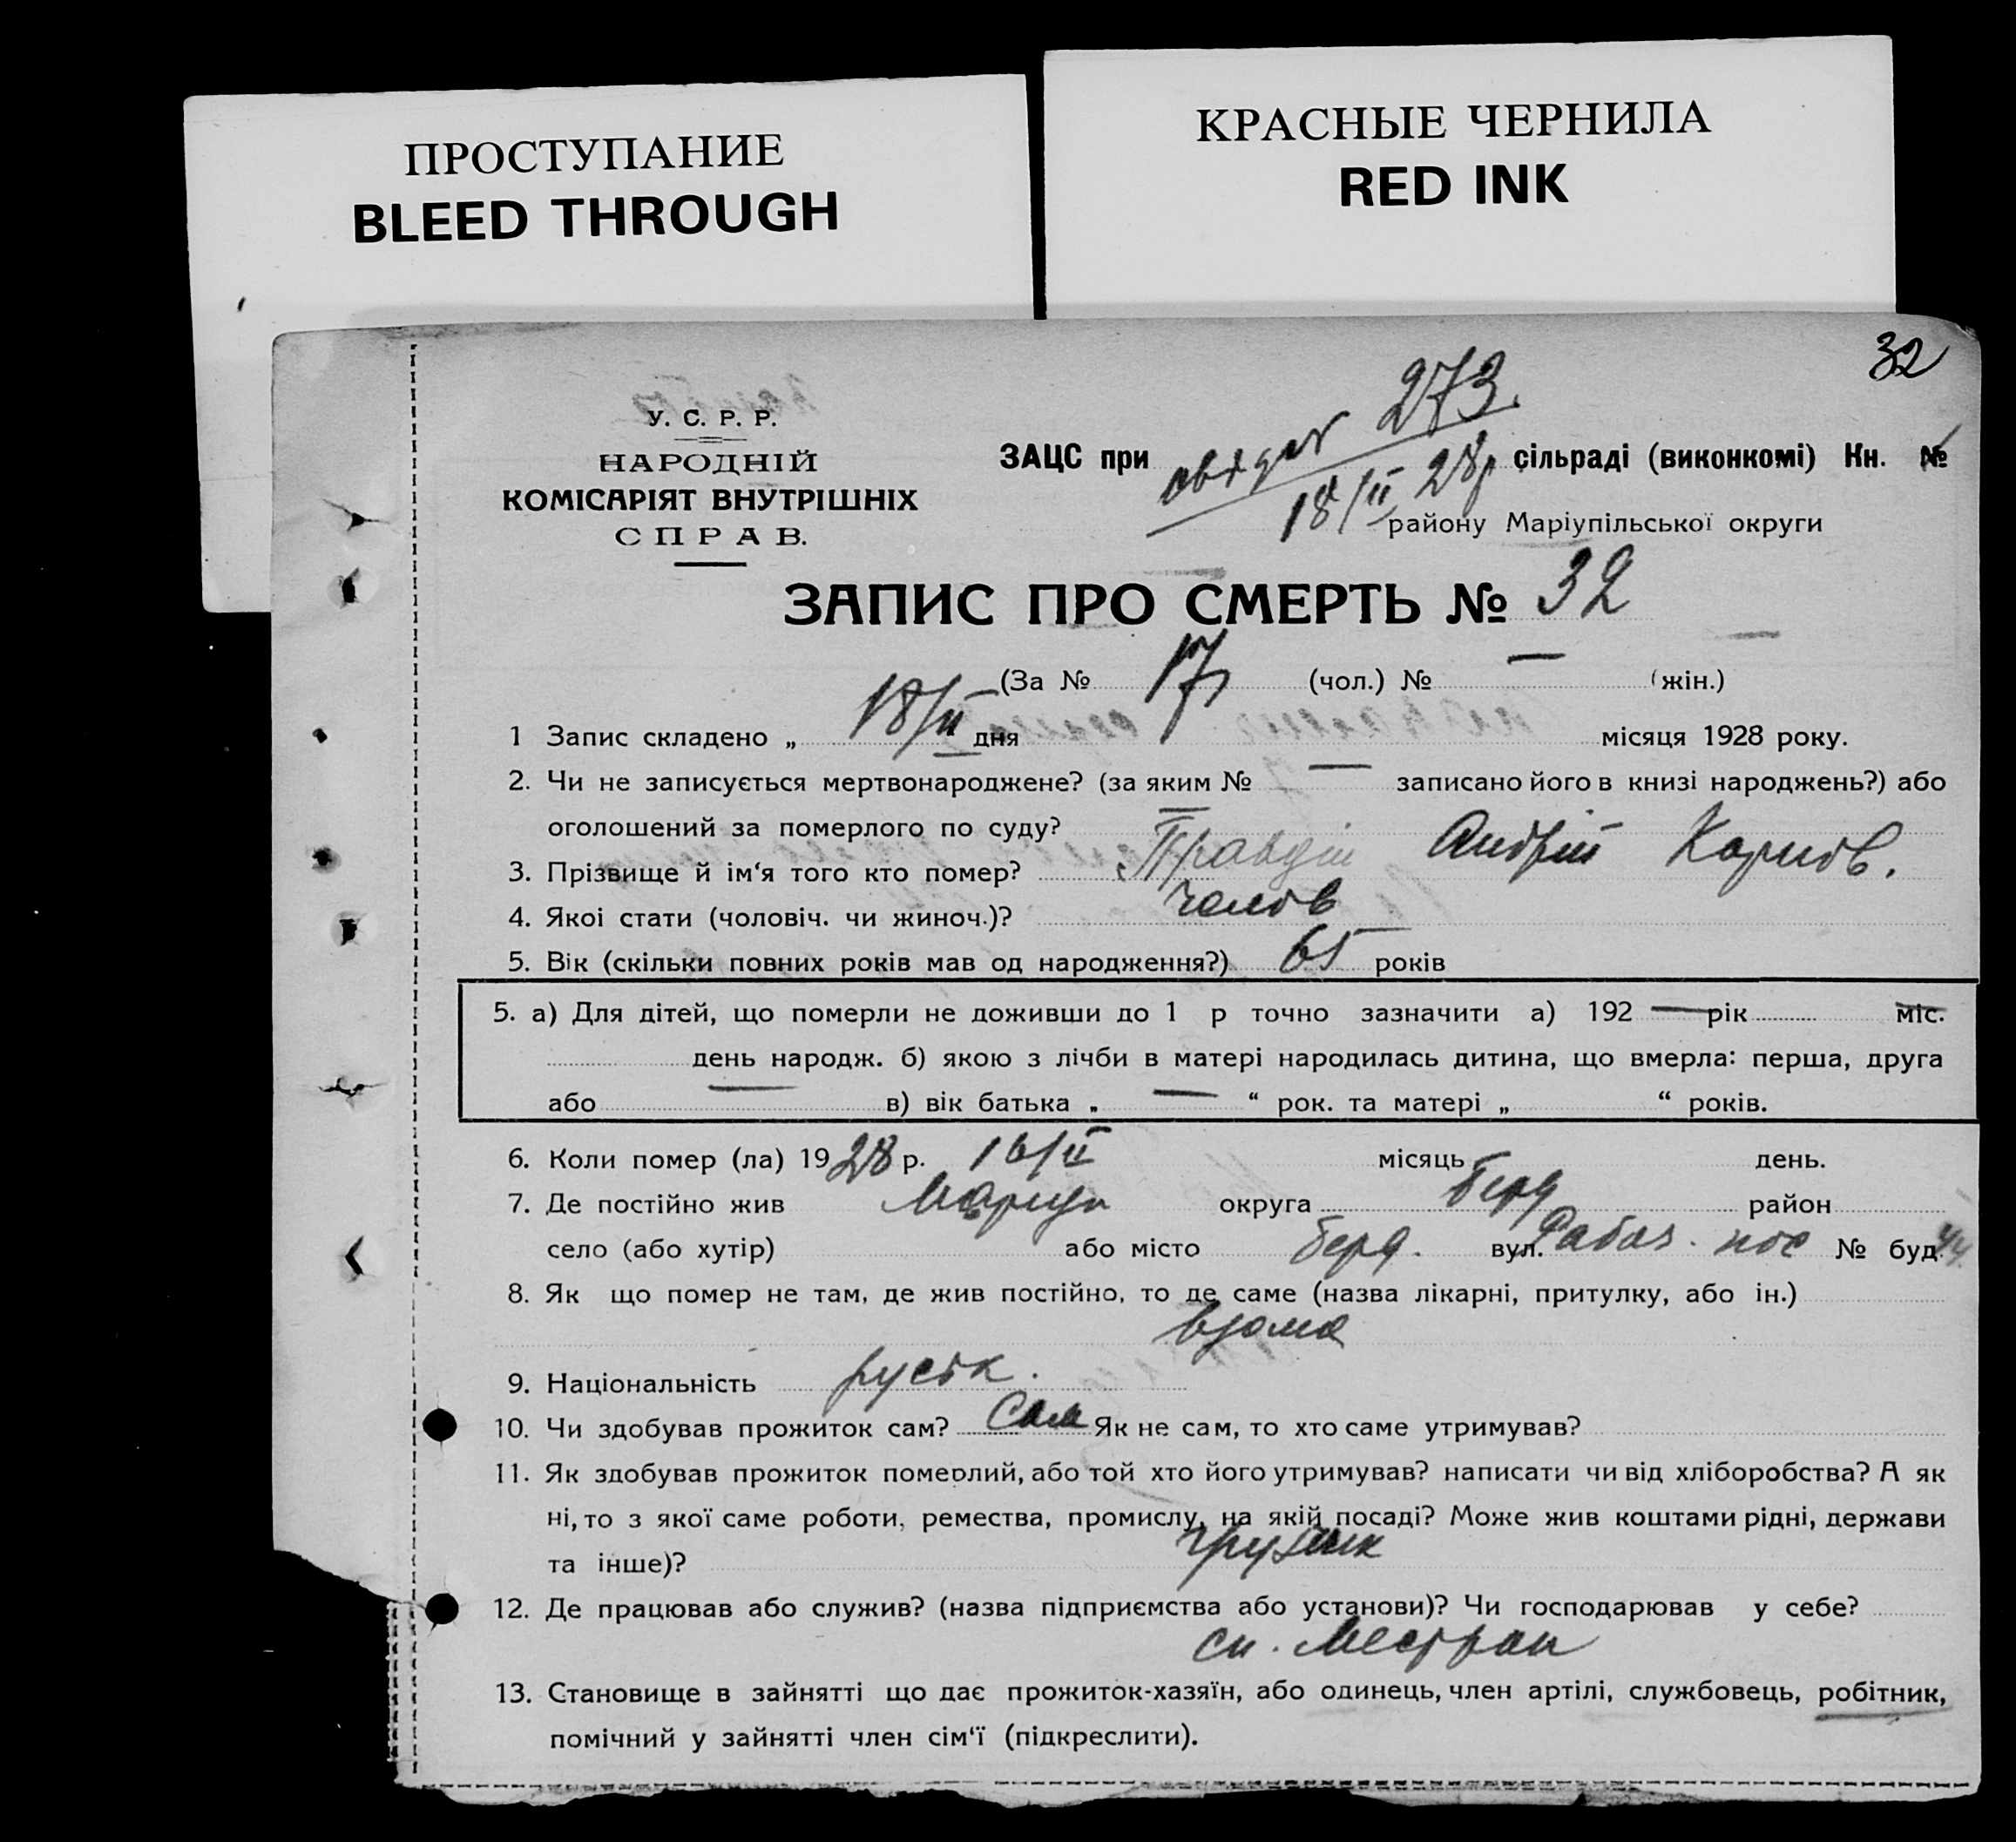 ПРОСТУПАНИЕ
BLEED THROUGH
КРАСНЫЕ ЧЕРНИЛА
RED INK
32
У. С. Р. Р.
НАРОДНІЙ
КОМІСАРІЯТ ВНУТРІШНІХ
СПРАВ.
273.
ЗАЦС при сільраді (виконкомі) Кн. №
18/II 28р
району Маріупільської округи
ЗАПИС ПРО СМЕРТЬ № 32
(За № 17 (чол.) № — (жін.)
1 Запис складено „ 18/II дня місяця 1928 року.
2. Чи не записується мертвонароджене? (за яким № — записано його в книзі народжень?) або
оголошений за померлого по суду? —
3. Прізвище й ім‘я того кто помер? Правдій Андрій Карпов.
4. Якоі стати (чоловіч. чи жиноч.)? чолов
5. Вік (скільки повних років мав од народження?) 65 років
5. а) Для дітей, що померли не доживши до 1 р точно зазначити а) 192 — рік міс.
день народж. б) якою з лічби в матері народилась дитина, що вмерла: перша, друга
або — в) вік батька „ — “ рок. та матері „ “ років.
6. Коли помер (ла) 1928 р. 16/II місяць день.
7. Де постійно жив Маріуп округа Берд район
село (або хутір) або місто Берд. вул. Рабоч. пос № буд. 44
8. Як що помер не там, де жив постійно, то де саме (назва лікарні, притулку, або ін.)
вдома
9. Національність руськ.
10. Чи здобував прожиток сам? Сам Як не сам, то хто саме утримував?
11. Як здобував прожиток померлий, або той хто його утримував? написати чи від хліборобства? А як
ні, то з якої саме роботи, ремества, промислу, на якій посаді? Може жив коштами рідні, держави
та інше)? грузчик
12. Де працював або служив? (назва підприємства або установи)? Чи господарював у себе?
13. Становище в зайнятті що дає прожиток-хазяїн, або одинець, член артілі, службовець, робітник,
помічний у зайнятті член сім‘ї (підкреслити).